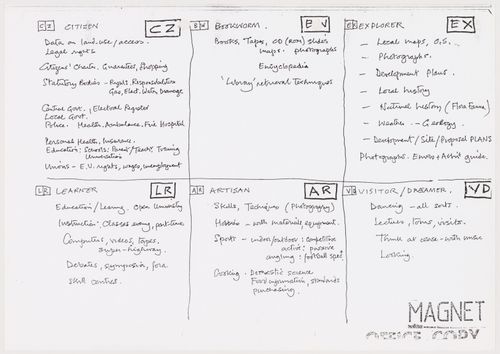 CZ CITIZEN CZ
Data on land-use/access.
Legal rights
Citizens' Charter, Guarantees, Shopping
Statutory Bodies - Rights, Responsibilities
Gas, Elect. Water Drainage
Central Govt. Electoral Register
Local Govt.
Police. Health. Ambulance. Fire Hospital
Personal Health, Insurance.
Education: Schools: Parent/Teach. Training
Universities
Unions - E.U. rights, wages, unemployment
BW BOOKWORM.
Books, Tapes, CD (ROM) slides
maps. photographs
Encyclopedia
'Library' retrieval techniques
EX EXPLORER EX
- Local maps, O.S.
- Photographs.
- Development Plans.
- Local history
- Natural history (Flora Fauna)
- Weather - Geology
- Development/Site/Proposed PLANS
Photographs. Enviro + Archit guide.
LR LEARNER LR
Education/Learning. Open University
Instruction: Classes evening, part time
Computers, videos, tapes,
super-highway.
Debates, symposia, fora
Skill centres.
AR ARTISAN AR
Skills, Techniques (Photography)
Hobbies - with materials, equipment.
Sports - indoor/outdoor: competitive
active: passive
angling: football spec.
Cooking. Domestic science
Food information, standards
purchasing.
VISITOR/DREAMER. VD
Dancing - all sorts.
Lectures, tours, visits.
Think at ease - with music
Looking.
MAGNET
OFFICE COPY